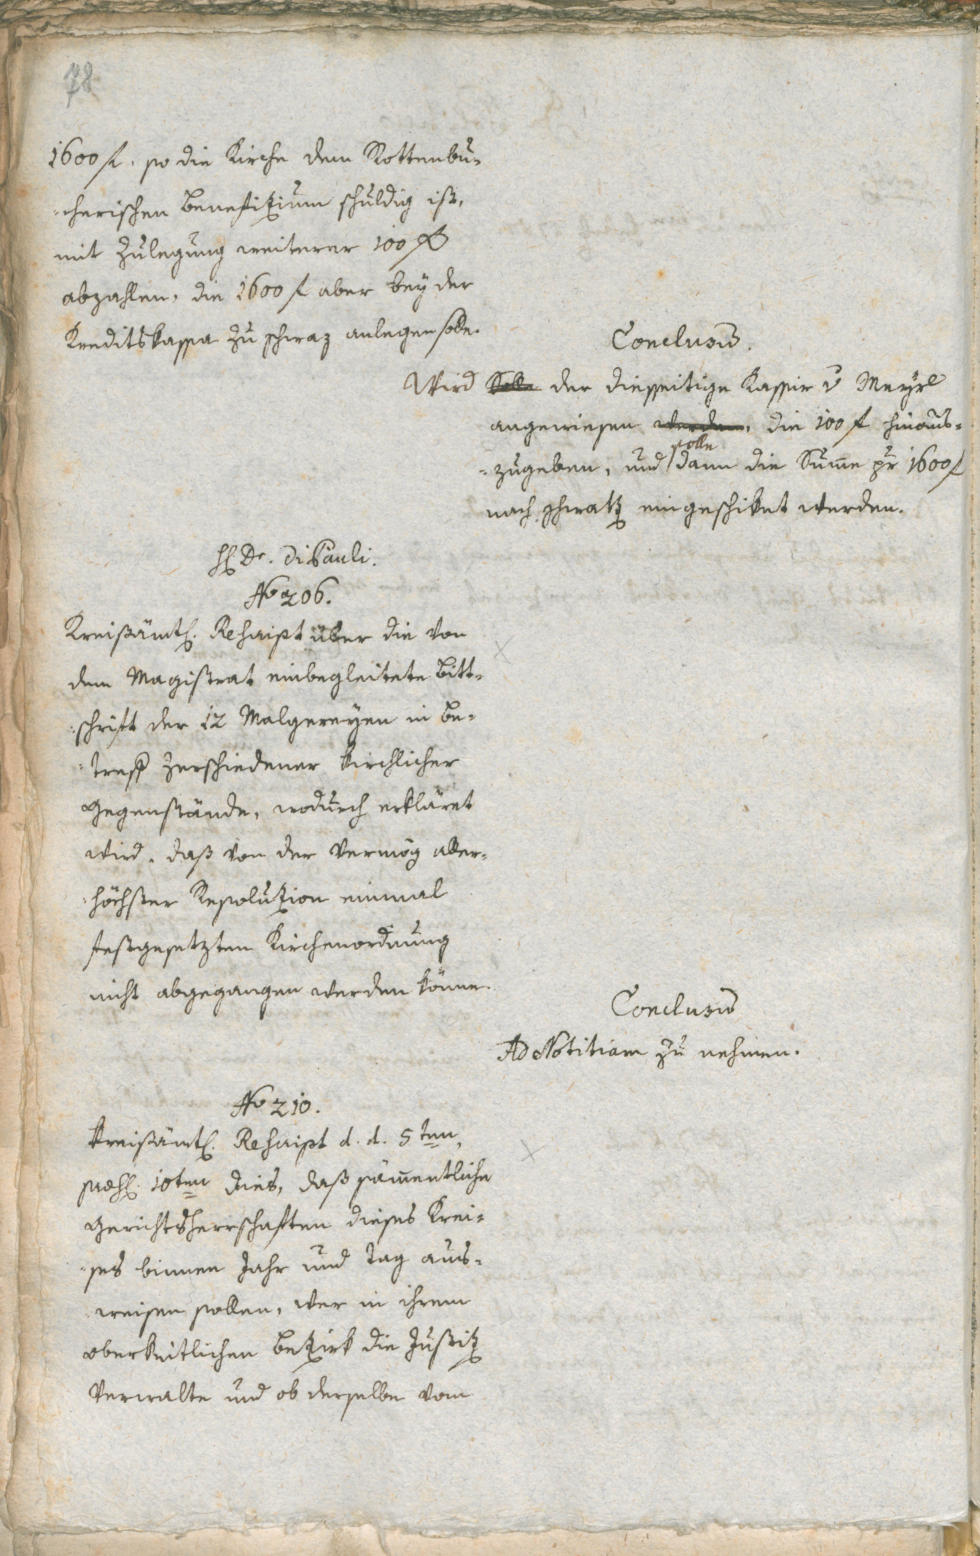 78
1600 f. so die Kirche dem Rottenbu-
-cherischen Benefizium schuldig ist,
mit Zulegung weiterer 100 f
abzahlen, die 1600 f aber bey der
Kreditskassa zu schwaz anlegen solle.
Conclusũ.
Wird Solle der diesseitige Kassir v Meyrl
angewiesen werden, die 100 f hinaus-
-zugeben, und solle dann die Sum̅e pr 1600 f
nach schwatz eingeschiket werden.
H Dr. Di Pauli.
No 206.
Kreißämtl. Rescript über die von
dem Magistrat einbegleitete Bitt-
-schrift der 12 Malgereyen in Be-
-treff zerschiedener kirchlicher
Gegenstände, wodurch erkläret
wird, daß von der vermög aller-
-höchster Resoluzion einmal
festgesetzten Kirchenordnung
nicht abgegangen werden könne.
Conclusũ
Ad Notitiam zu nehmen.
No 210.
Kreißämtl. Rescript d. d. 5ten,
10ten dies, daß säm̅entliche
Gerichtsherrschaften dieses Krei-
-ses binnen Jahr und Tag aus-
-weisen sollen, wer in ihrem
oberkeitlichen Bezirk die Justiz
verwalte und ob derselbe vom